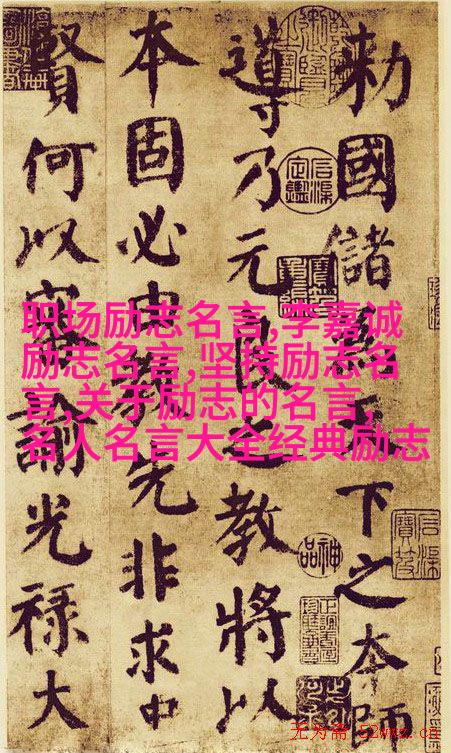 勑國儲爲天下之本師
導乃元良之教將以
本固必由教先非求中
賢何以審諭光祿大
职场励志名言,李嘉诚
励志名言,坚持励志名
言,关于励志的名言,
名人名言大全经典励志
神品
无为斋